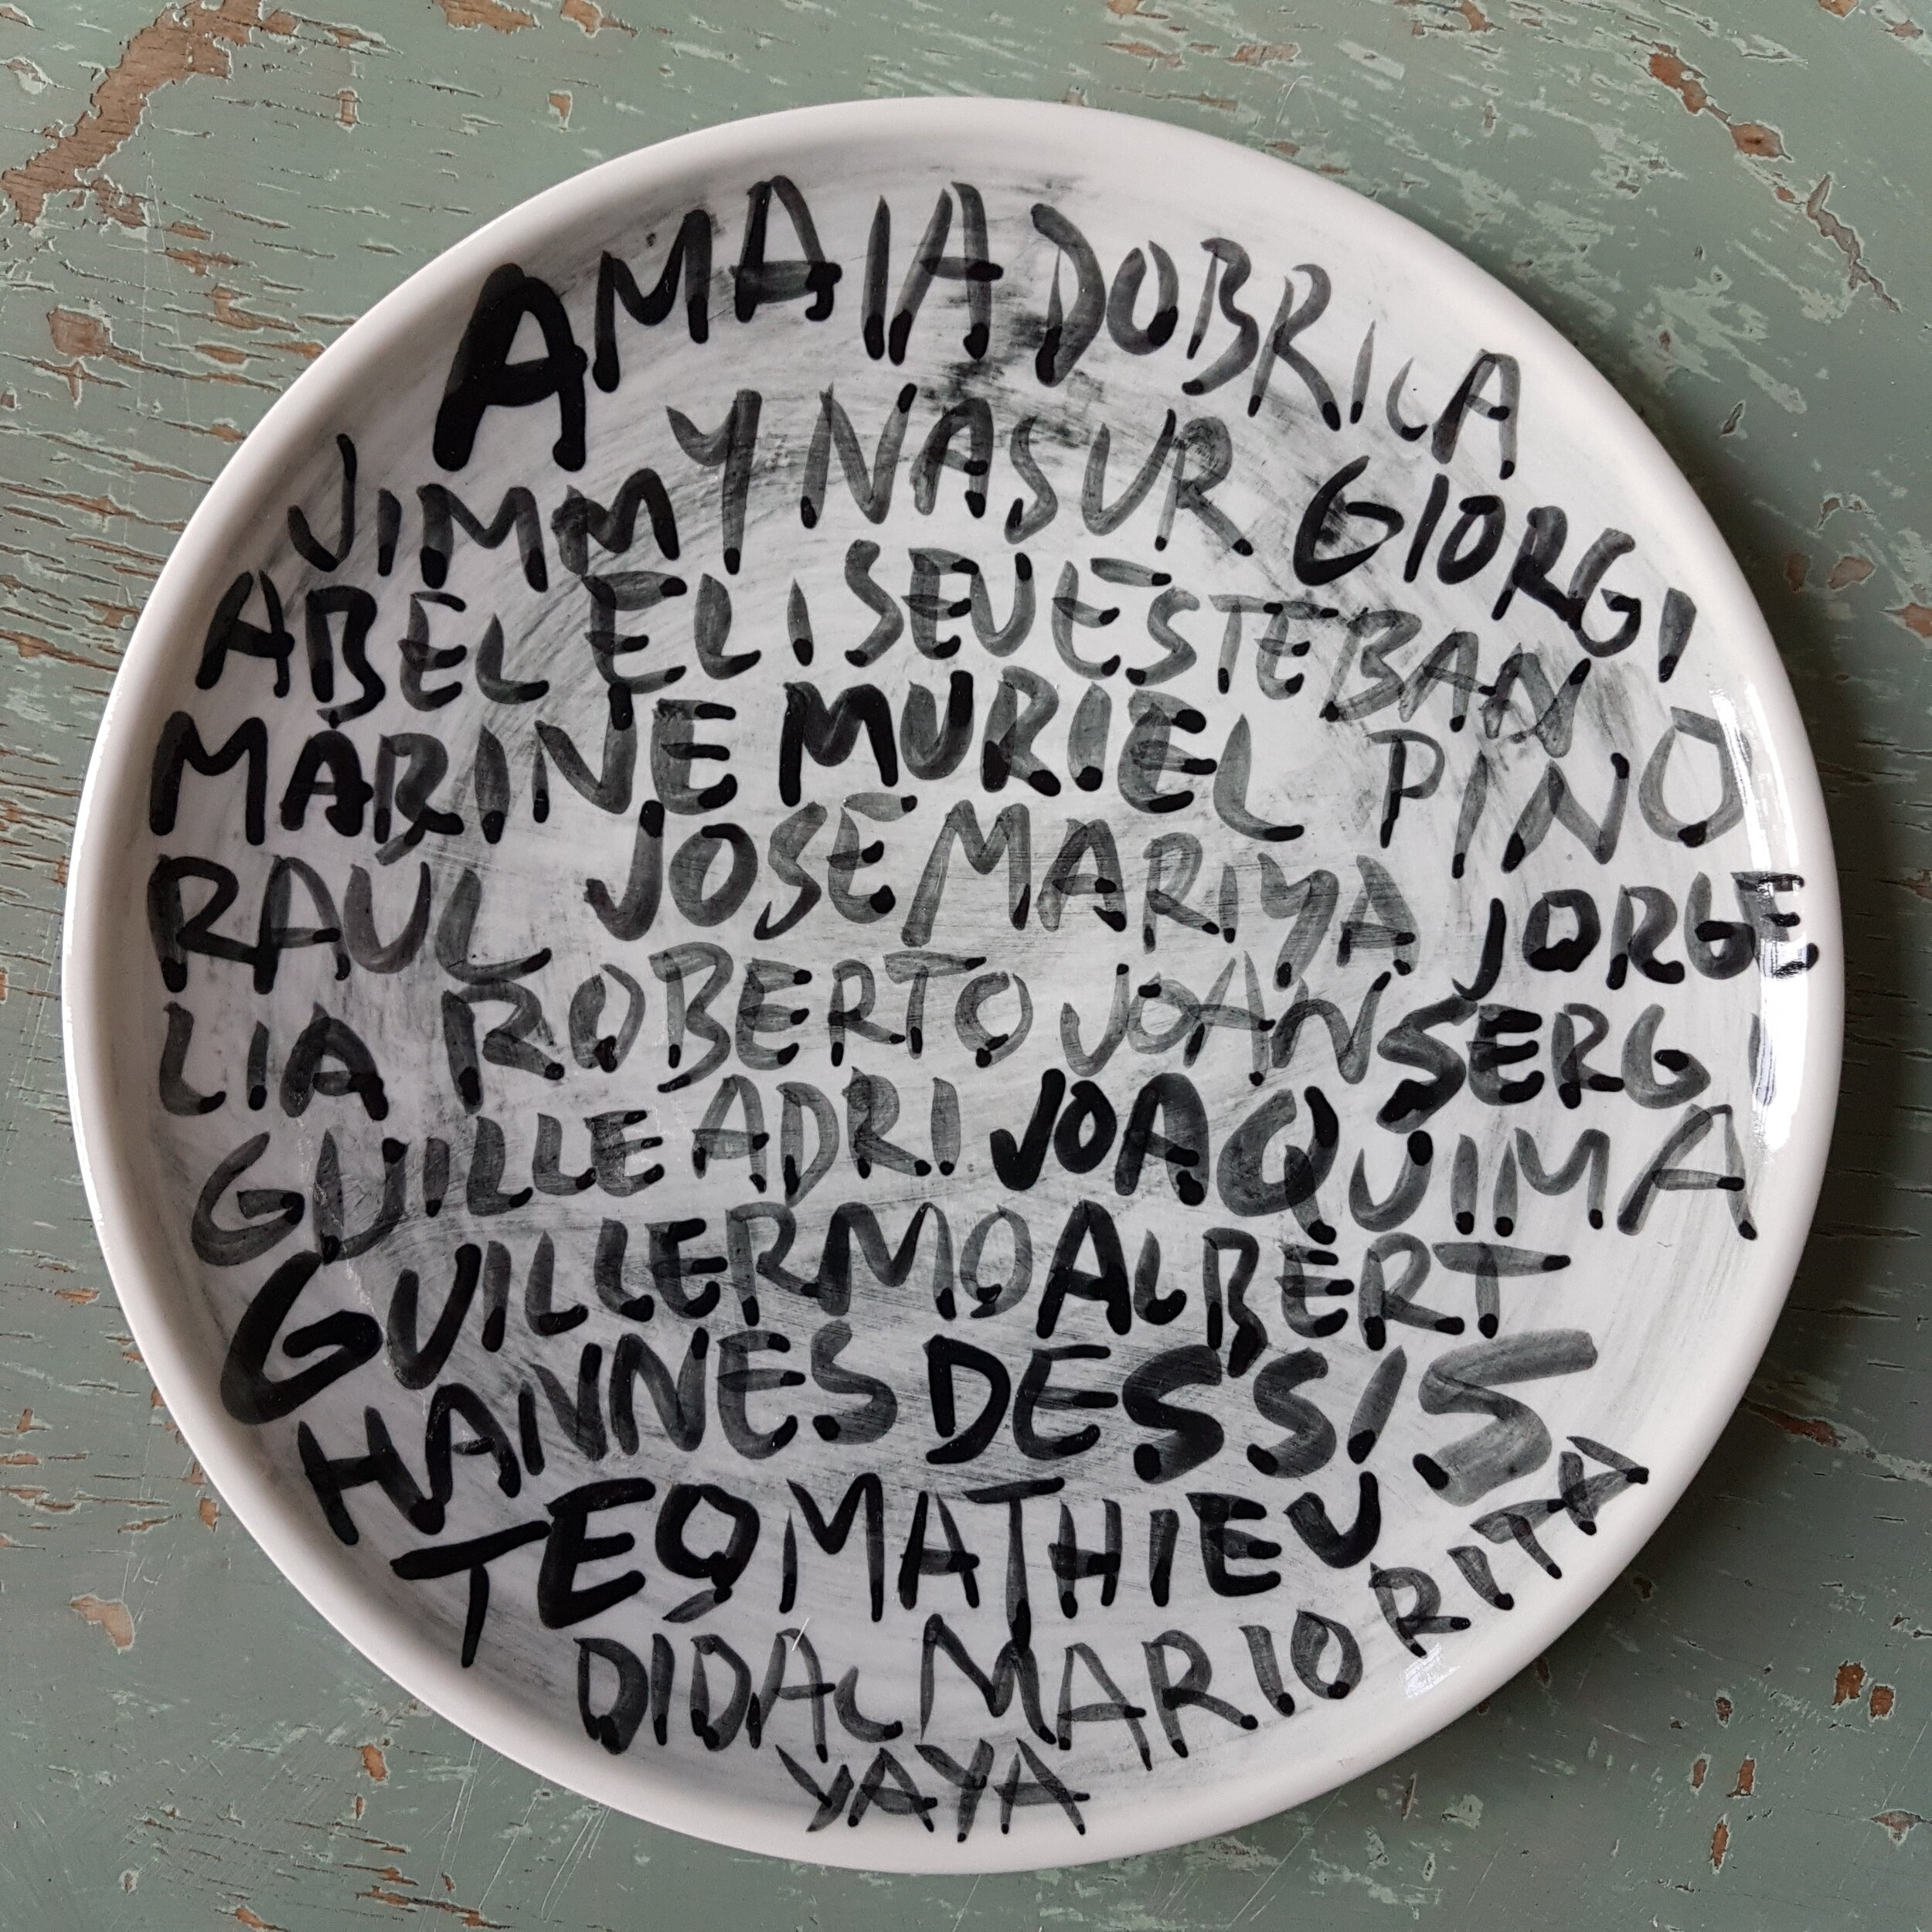 AMAIA DOBRILA
JIMMY NASUR GIORGI
ABEL ELISEU ESTEBAN
MARINE MURIEL PINO
RAUL JOSE MARIYA JORGE
LIA ROBERTO JOAN SERGI
GUILLE ADRI JOAQUIMA
GUILLERMO ALBERT
HANNES DESSIS
TEO MATHIEU RITA
DIDAC MARIO
YAYA